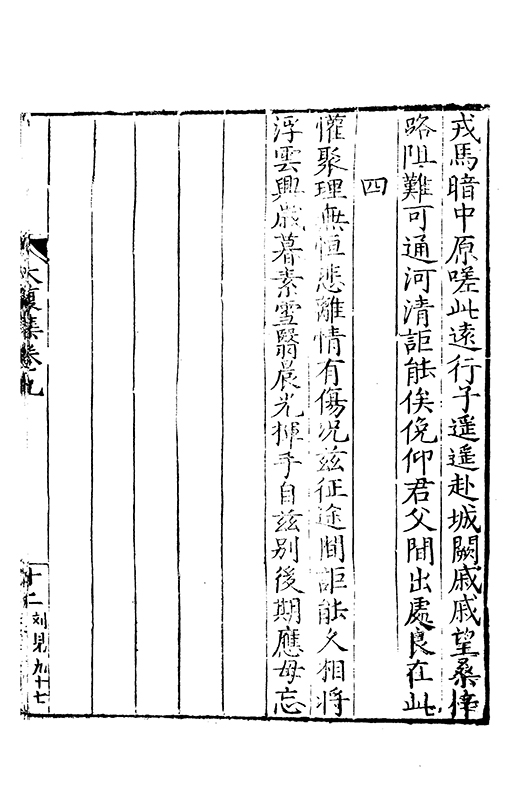 戎馬暗中原嗟此遠行子遥遥赴城闕戚戚望桑梓
路阻難可通河清詎能俟俛仰君父間出處良在此
四
懽聚理無恒悲離情有傷况兹征途間詎能久相將
浮雲興歲暮素雪翳晨光揮手自兹别後期應毋忘
大復集卷之九
十二 刘見九十七